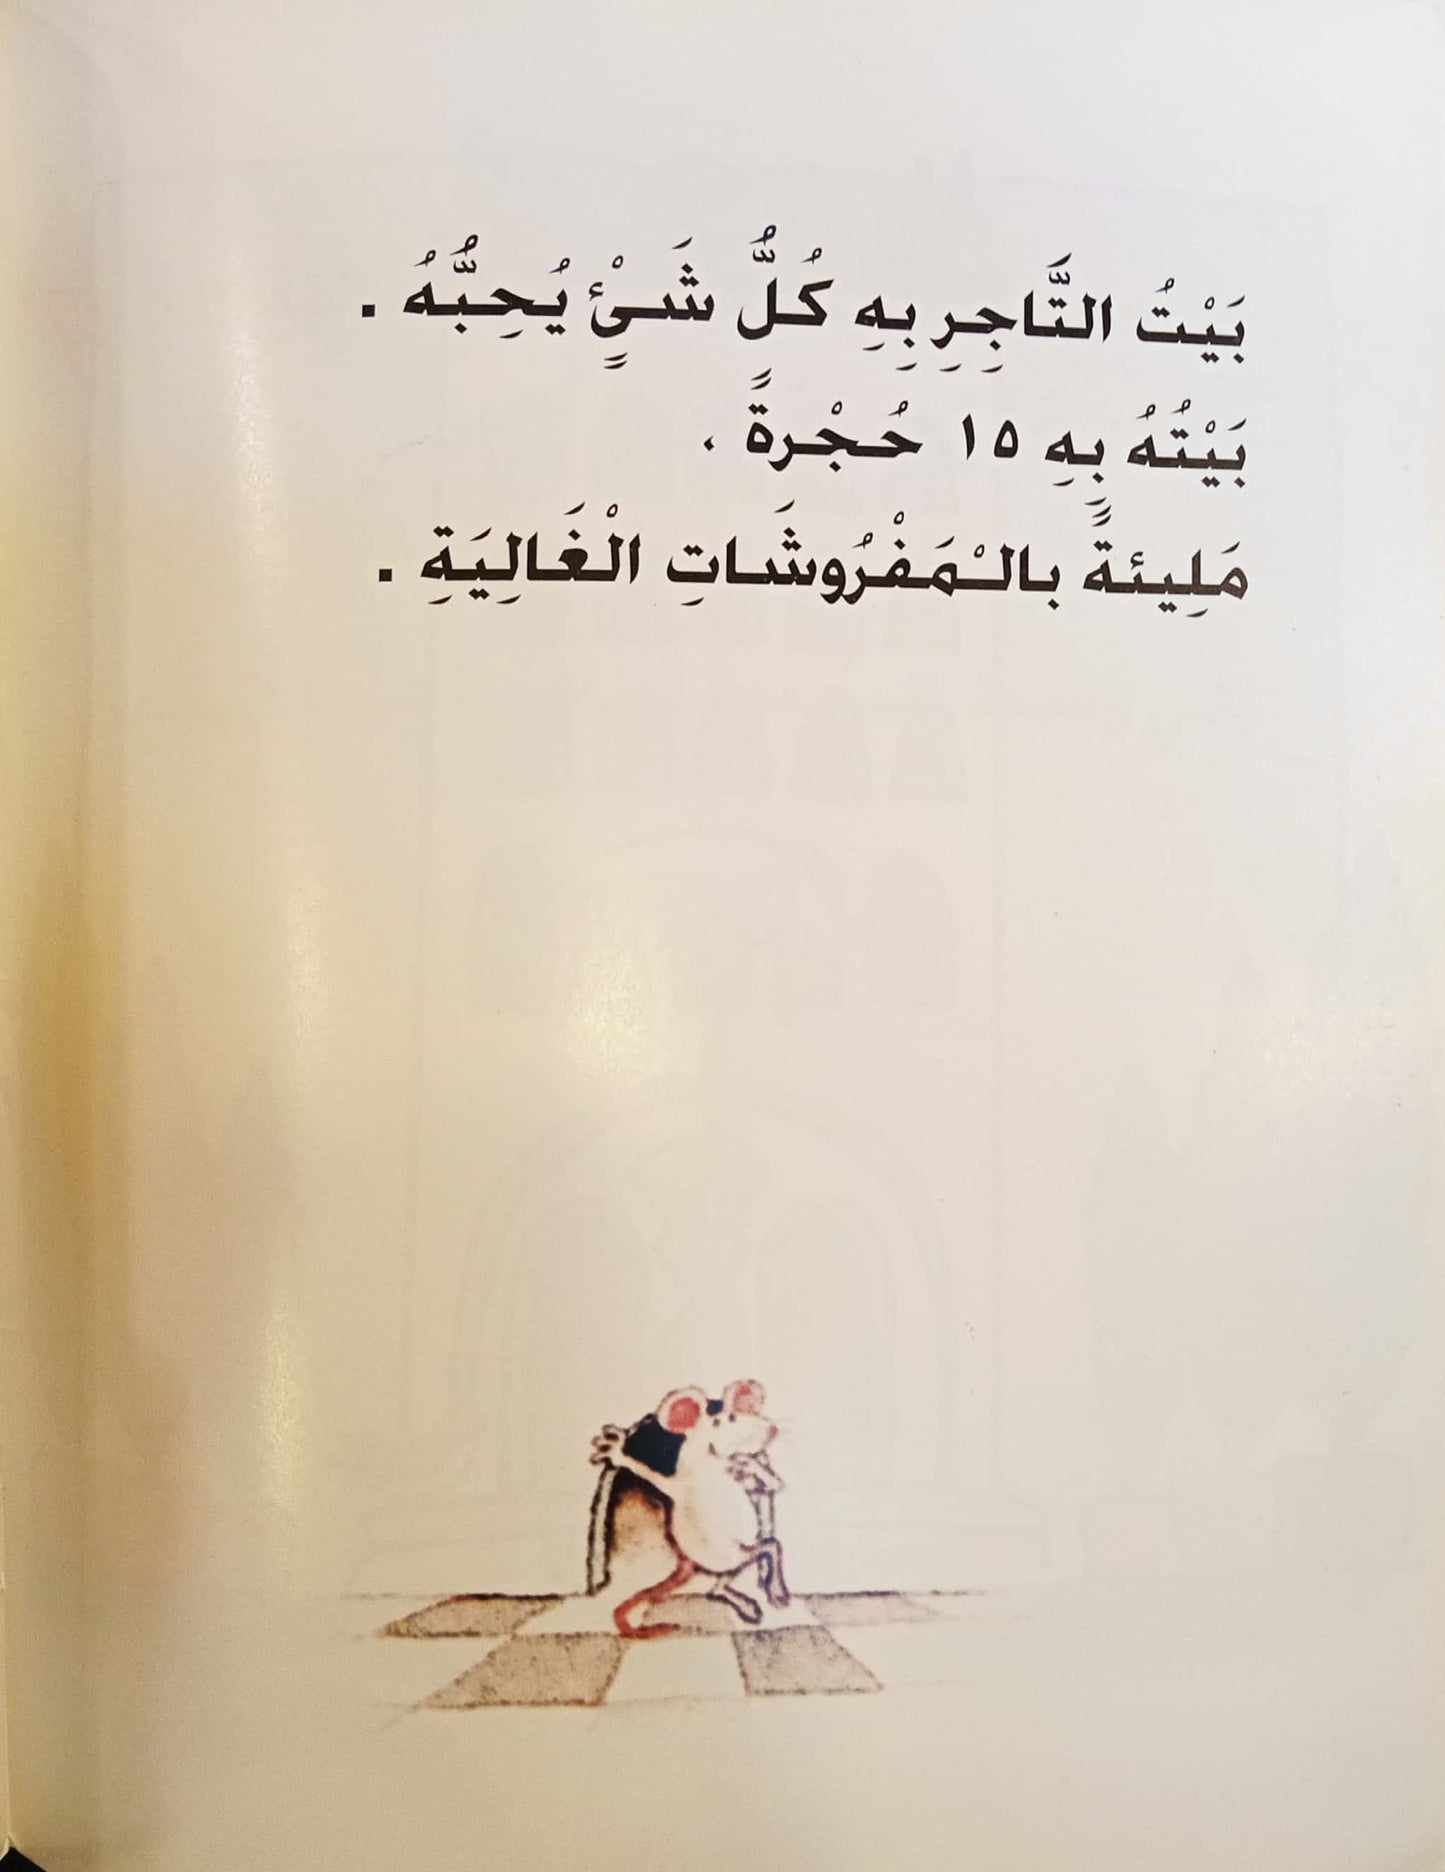 بَيْتُ التَّاجِرِ بِهِ كُلُّ شَىْءٍ يُحِبُّهُ .
بَيْتُهُ بِهِ ١٥ حُجْرةً ،
مَلِيئةً بالْمَفْرُوشَاتِ الْغَالِيَةِ .